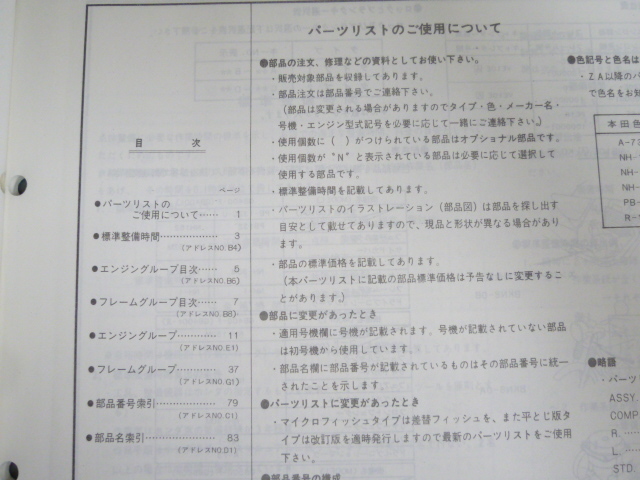 パーツリストのご使用について
目 次
ページ
●パーツリストの
ご使用について…… 1
●標準整備時間…… 3
(アドレスNO.B4)
●エンジングループ目次…… 5
(アドレスNO.B6)
●フレームグループ目次…… 7
(アドレスNO.B8)
●エンジングループ…… 11
(アドレスNO.E1)
●フレームグループ…… 37
(アドレスNO.G1)
●部品番号索引…… 79
(アドレスNO.C1)
●部品名索引…… 83
(アドレスNO.D1)
●部品の注文、修理などの資料としてお使い下さい。
・販売対象部品を収録してあります。
・部品注文は部品番号でご連絡下さい。
(部品は変更される場合がありますのでタイプ・色・メーカー名・
号機・エンジン型式記号を必要に応じて一緒にご連絡下さい。)
・使用個数に( )がつけられている部品はオプショナル部品です。
・使用個数が"N"と表示されている部品は必要に応じて選択して
使用する部品です。
・標準整備時間を記載してあります。
・パーツリストのイラストレーション(部品図)は部品を探し出す
目安として載せてありますので、現品と形状が異なる場合があり
ます。
・部品の標準価格を記載してあります。
(本パーツリストに記載の部品標準価格は予告なしに変更するこ
とがあります。)
●部品に変更があったとき
・適用号機欄に号機が記載されます。号機が記載されていない部品
は初号機から使用しています。
・部品名欄に部品番号が記載されているものはその部品番号に統一
されたことを示します。
●パーツリストに変更があったとき
・マイクロフィッシュタイプは差替フィッシュを、また平とじ版タ
イプは改訂版を適時発行しますので最新のパーツリストをご使用
下さい。
●部品番号の構成
●色記号と色名は
・ZA以降のパ
で色名をお知
本田色
A-7
NH-
NH-
NH-
PB-
R-
●略語
・パーツ
ASSY.
COMP
R.……
L.……
STD.